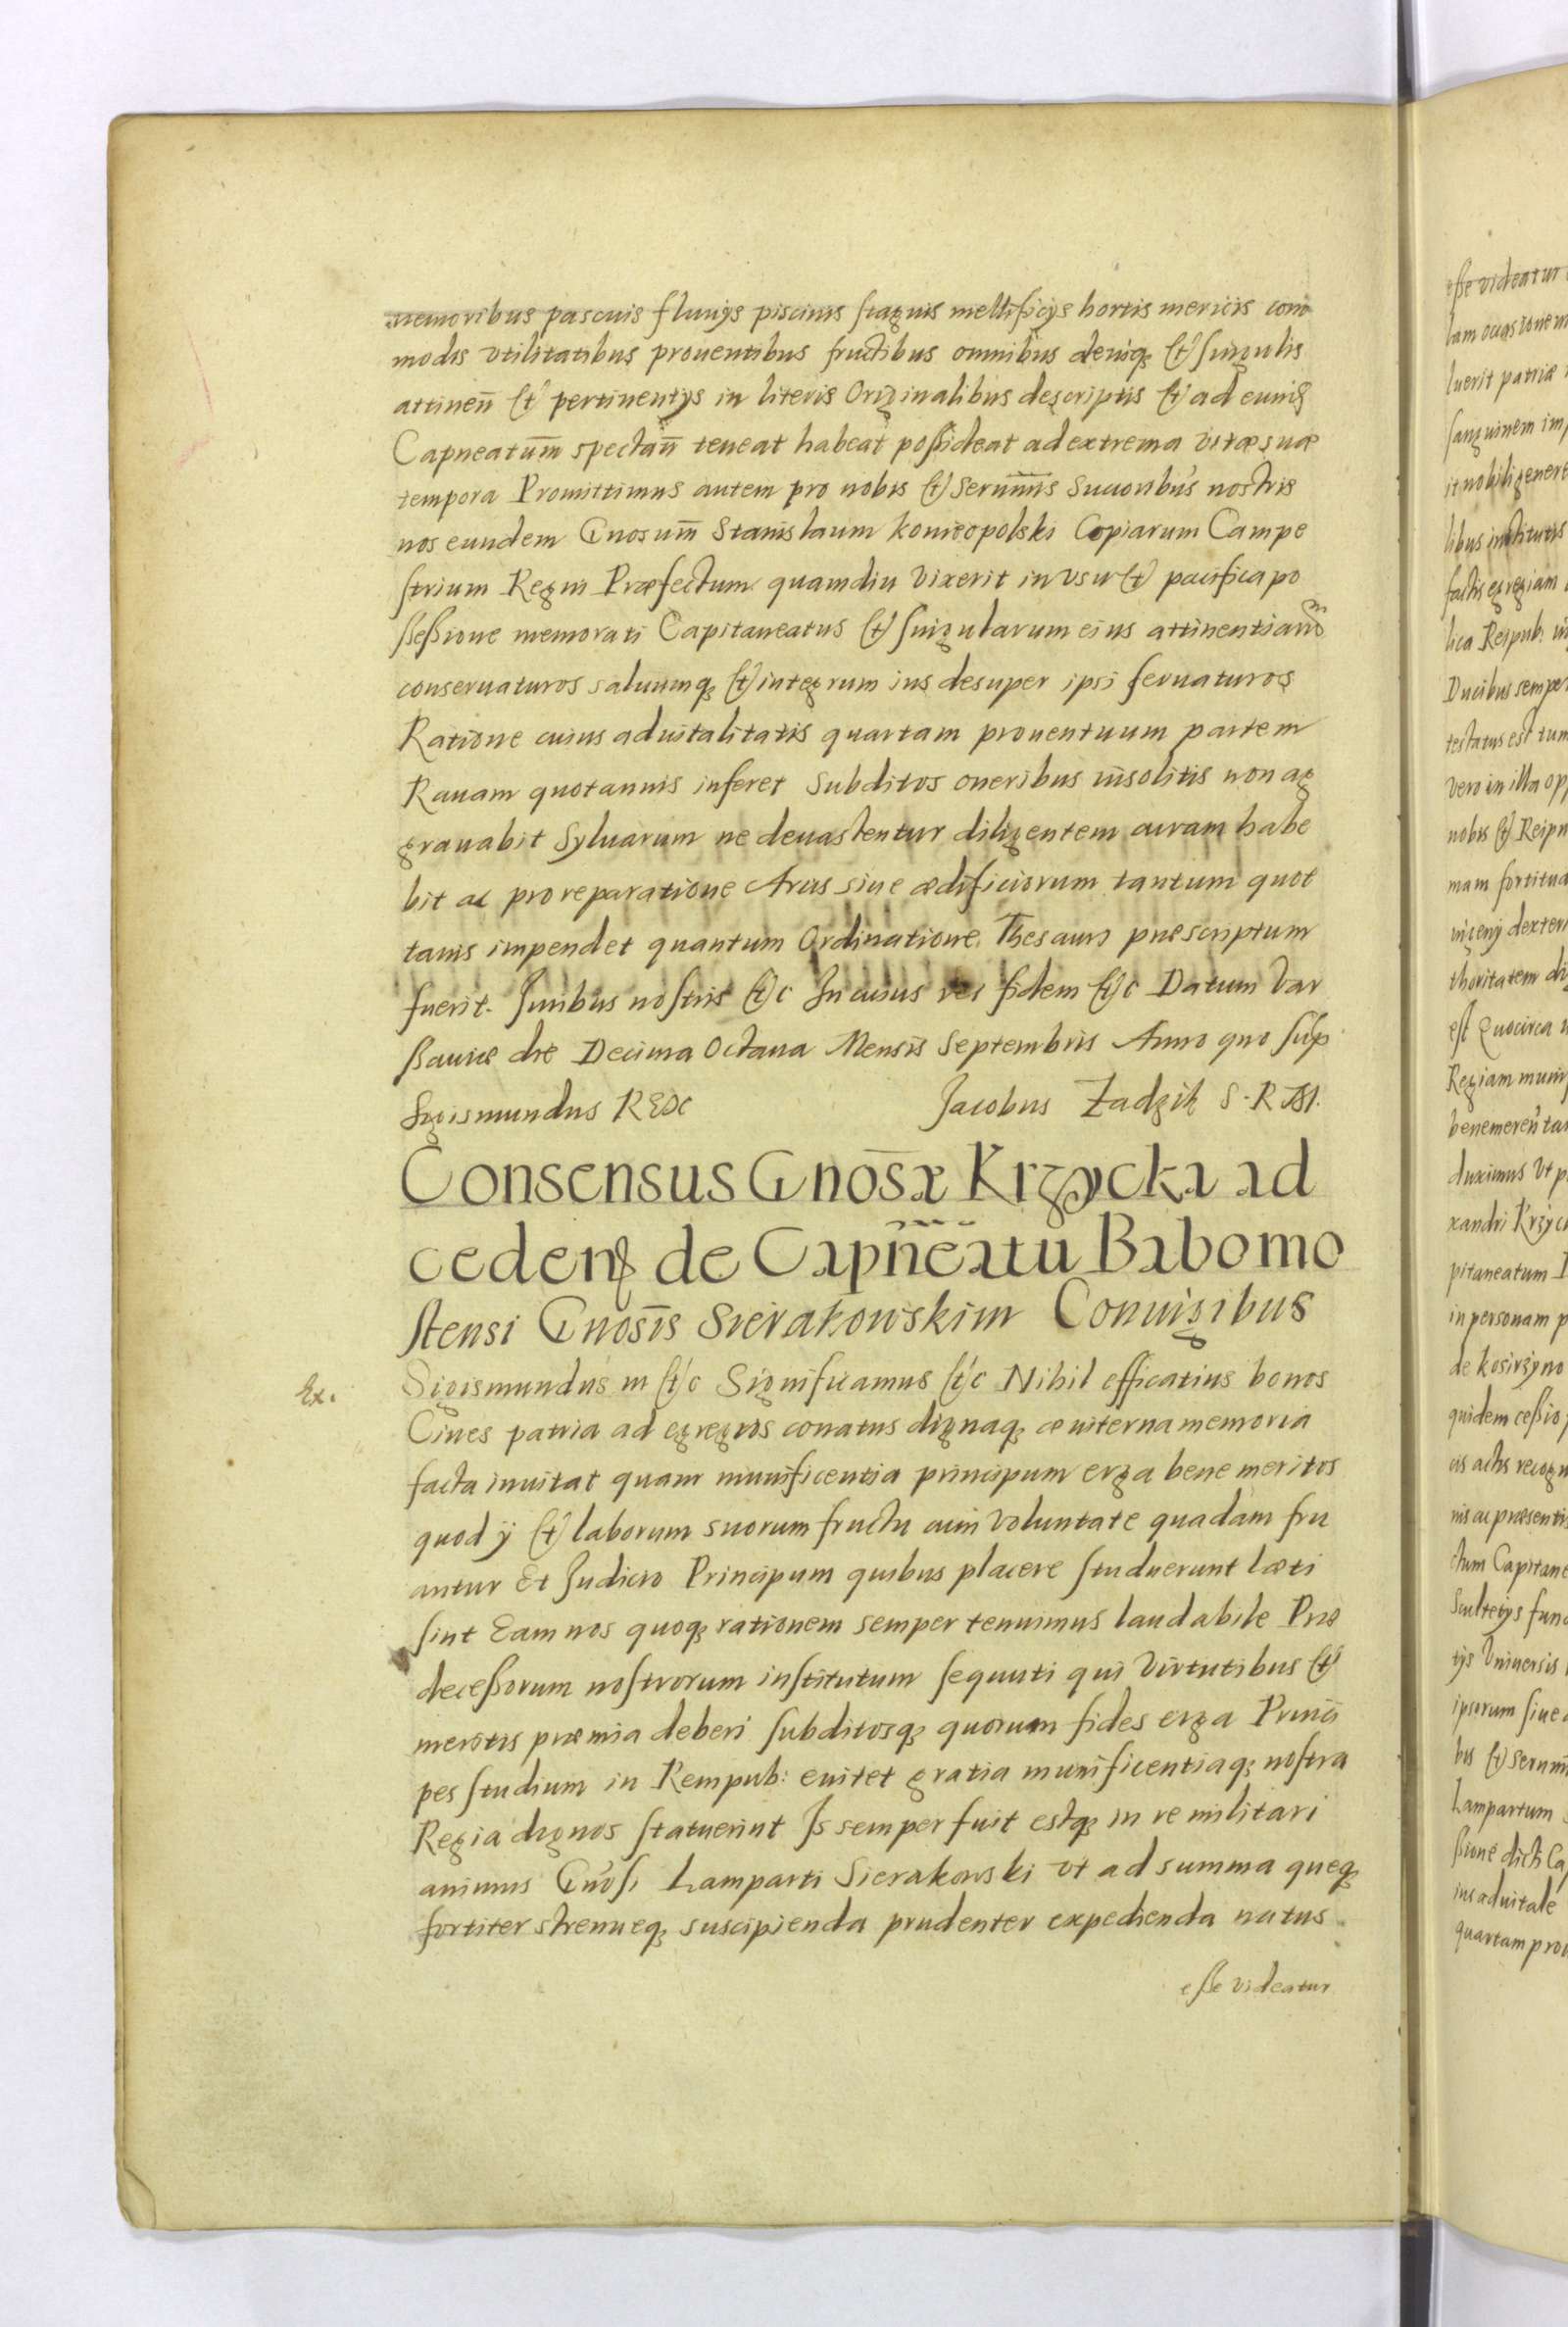 nemoribus pascuis fluuijs piscinis stagnis mellificijs hortis mericis com
modis vtilitatibus prouentibus fructibus omnibus deniq₃ et singulis
attineñ et pertinentijs in literis Originalibus descriptis et ad eund₃
Capneatum̄ spectan̄ teneat habeat possideat ad extrema vitæ suæ
tempora Promittimus autem pro nobis et Serenn̄is Succoribus nostris
nos eundem Gnosum̄ Stanislaum Koniecpolski Copiarum Campe
strium Regni Præfectum quamdiu vixerit in vsu et pacifica po
ssessione memorati Capitaneatus et singularum eius attinentiarum
conseruaturos saluumq₃ et integrum ius desuper ipsi seruaturos
Ratione cuius aduitalitatis quartam prouentuum partem
Rauam quotannis inferet Subditos oneribus insolitis non ag
grauabit Syluarum ne deuastentur diligentem curam habe
bit ac pro reparatione Arcis siue ædificiorum tantum quot
tanis impendet quantum Ordinatione Thesauri præscriptum
fuerit. Juribus nostris etc In cuius rei fidem etc Datum Var
ssauiæ die Decima Octaua Mensis Septembris Anno quo sup
Sigismundus REX Jacobus Zadzik S. R M.
Consensus Gnos̄æ Krzycka ad
ceden₫ de Capn̄eatu Babomo
stensi Gnosīs Sierakowskim Coniugibus
Ex.
Sigismundus III etc Significamus etc Nihil efficatius bonos
Ciues patria ad egregios conatus dignaq₃ æuiterna memoria
facta inuitat quam munificentia principum erga bene meritos
quod ij et laborum suorum fructu cum voluntate quadam fru
antur Et Judicio Principum quibus placere studuerunt læti
sint Eam nos quoq₃ rationem semper tenuimus laudabile Præ
decessorum nostrorum institutum sequuti qui Virtutibus et
meritis præmia deberi subditosq₃ quorum fides erga Princi
pes studium in Rempub: enitet gratia munificentiaq₃ nostra
Regia dignos statuerint Is semper fuit estq₃ in re militari
animus Gnosi Lamparti Sierakowski vt ad summa queq₃
fortiter strenueq₃ suscipienda prudenter expedienda natus
esse videatur